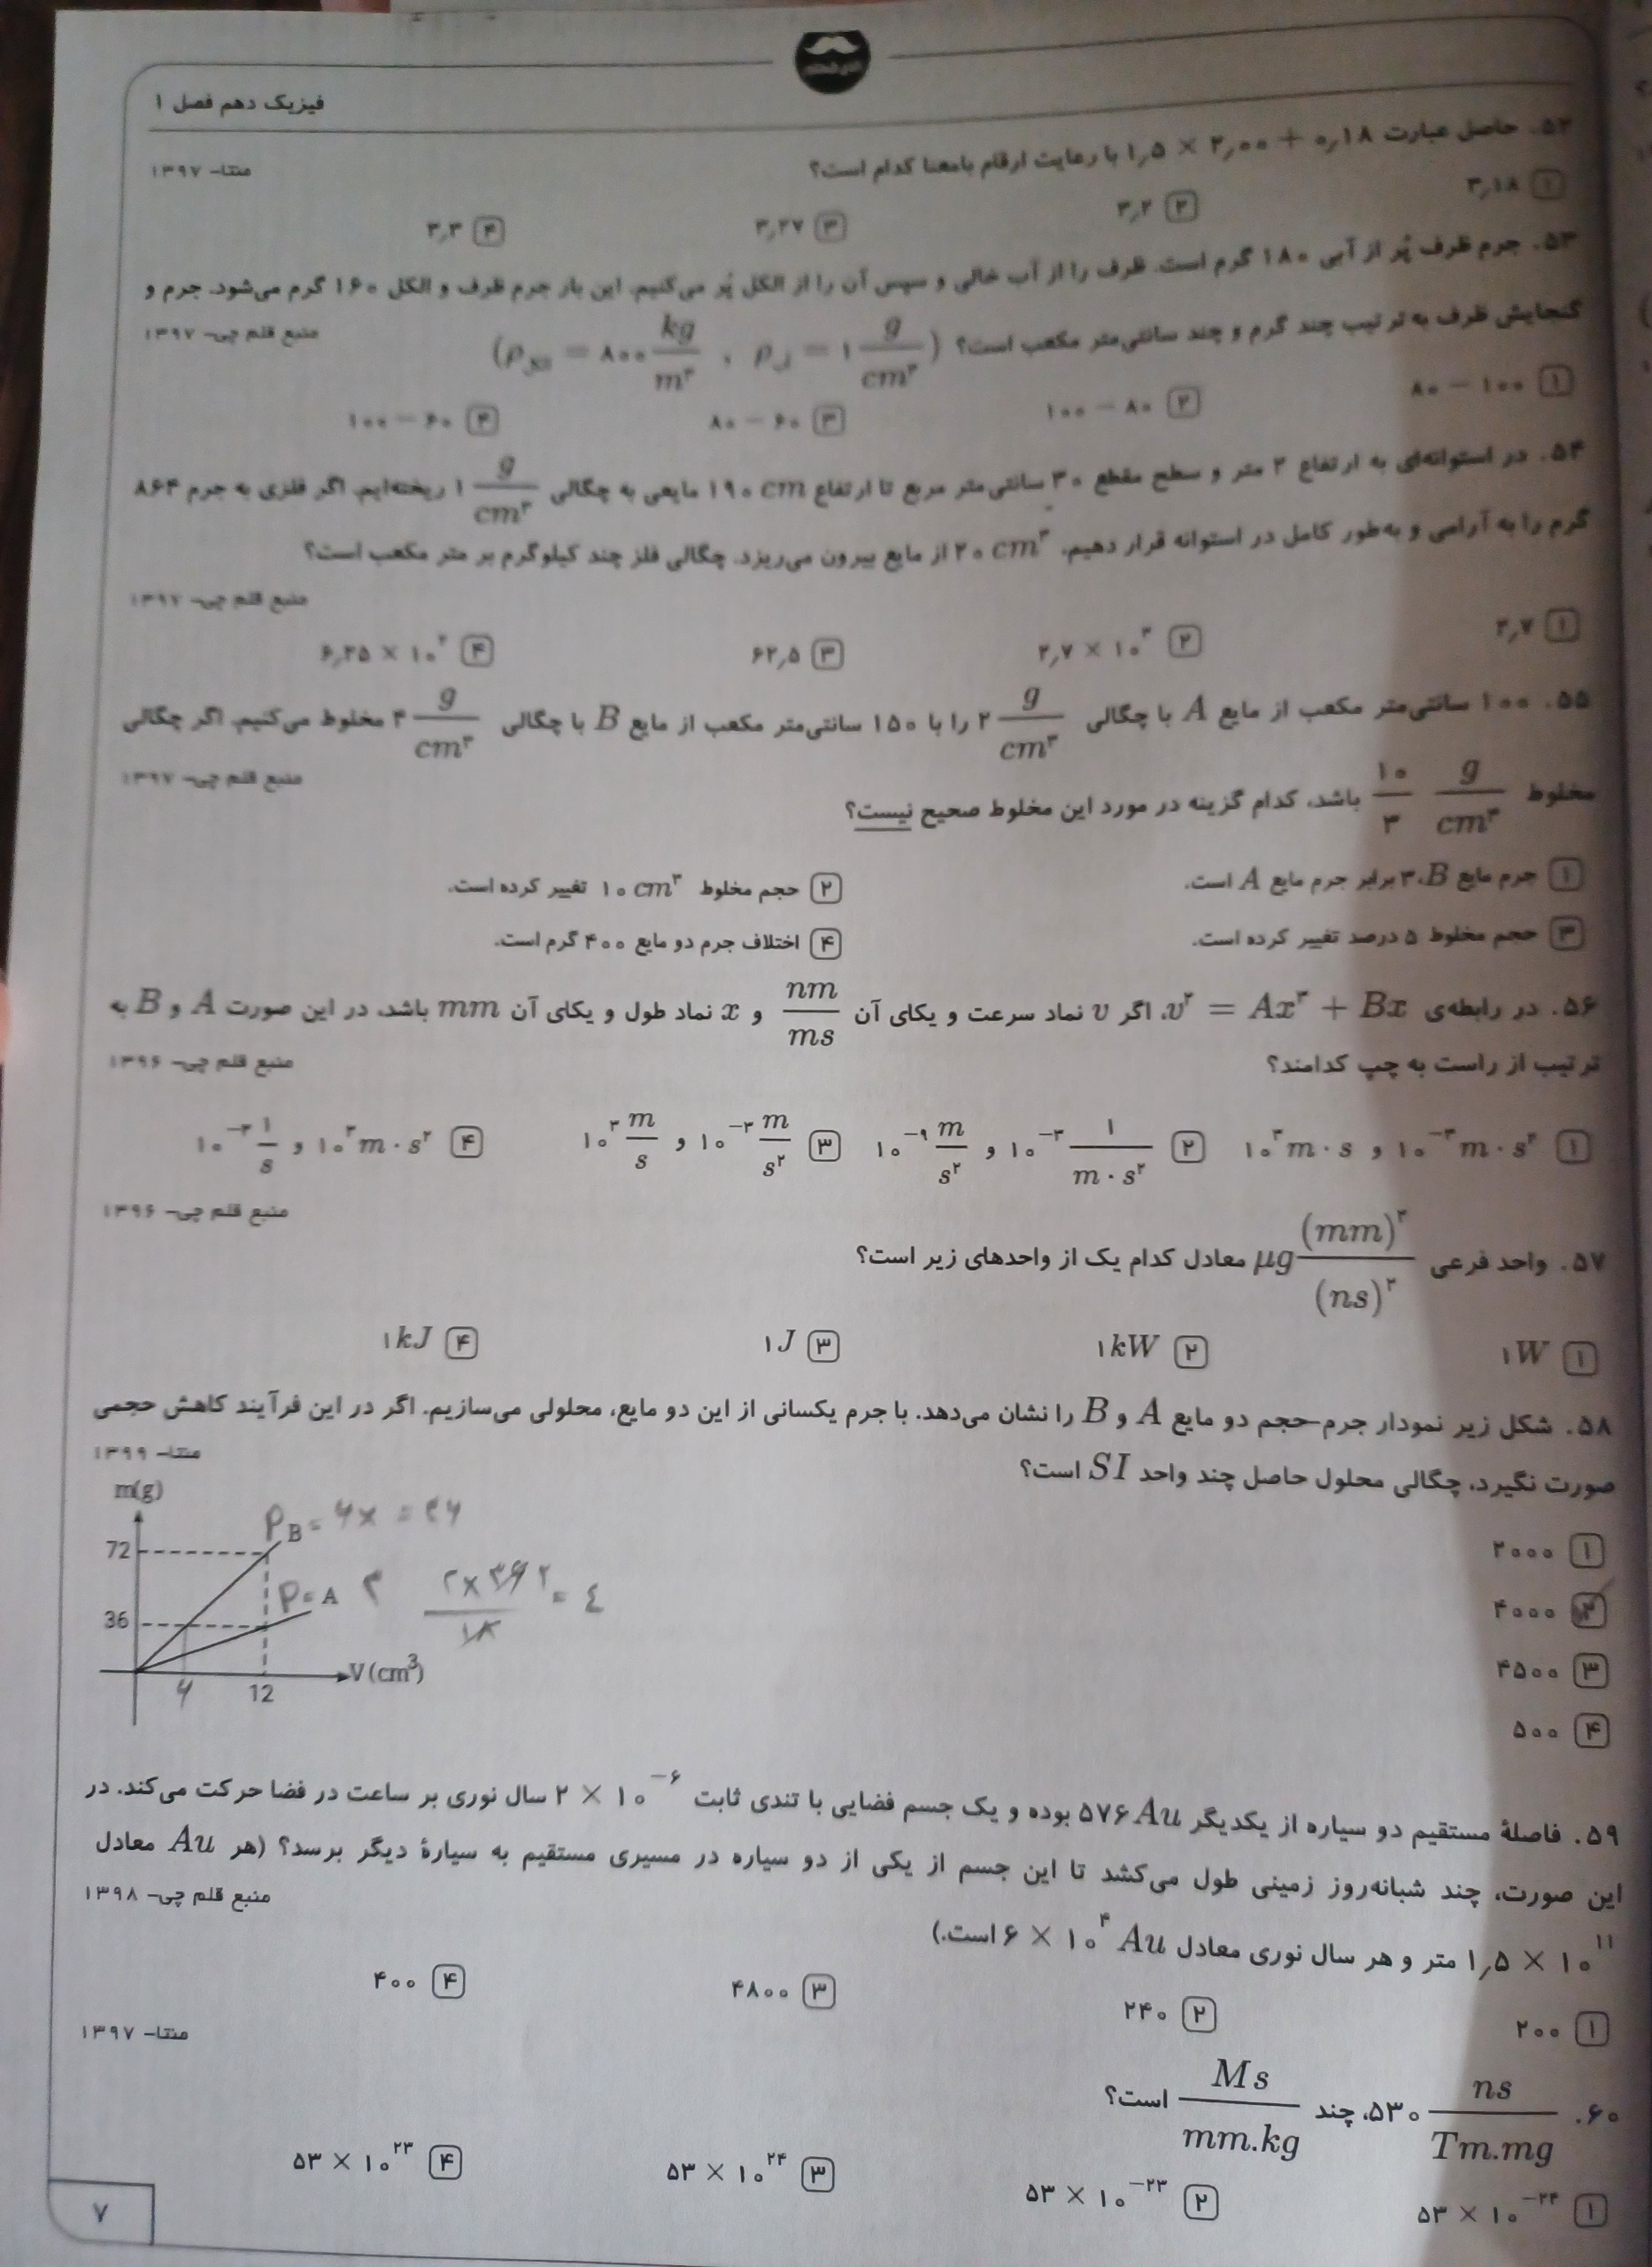 فیزیک دهم فصل ۱
۵۲. حاصل عبارت ۱٫۵ × ۲٫۰۰ + ۰٫۱۸ با رعایت ارقام بامعنا کدام است؟
منتا- ۱۳۹۷
۱ ۳٫۱۸
۲ ۳٫۲
۳ ۳٫۲۷
۴ ۳٫۳
۵۳. جرم ظرف پُر از آبی ۱۸۰ گرم است. ظرف را از آب خالی و سپس آن را از الکل پُر می‌کنیم. این بار جرم ظرف و الکل ۱۶۰ گرم می‌شود. جرم و
گنجایش ظرف به ترتیب چند گرم و چند سانتی‌متر مکعب است؟ (ρ الکل = ۸۰۰ kg/m³ , ρ آب = ۱ g/cm³)
منبع قلم چی- ۱۳۹۷
۱ ۱۰۰ – ۸۰
۲ ۸۰ – ۱۰۰
۳ ۶۰ – ۸۰
۴ ۶۰ – ۱۰۰
۵۴. در استوانه‌ای به ارتفاع ۲ متر و سطح مقطع ۳۰ سانتی‌متر مربع تا ارتفاع ۱۹۰ cm مایعی به چگالی ۱ g/cm³ ریخته‌ایم. اگر فلزی به جرم ۸۶۴
گرم را به آرامی و به‌طور کامل در استوانه قرار دهیم، ۲۰ cm³ از مایع بیرون می‌ریزد. چگالی فلز چند کیلوگرم بر متر مکعب است؟
منبع قلم چی- ۱۳۹۷
۱ ۲٫۷
۲ ۲٫۷ × ۱۰³
۳ ۶۲٫۵
۴ ۶٫۲۵ × ۱۰
۵۵. ۱۰۰ سانتی‌متر مکعب از مایع A با چگالی ۲ g/cm³ را با ۱۵۰ سانتی‌متر مکعب از مایع B با چگالی ۴ g/cm³ مخلوط می‌کنیم. اگر چگالی
مخلوط ۱۰/۳ g/cm³ باشد، کدام گزینه در مورد این مخلوط صحیح نیست؟
منبع قلم چی- ۱۳۹۷
۱ جرم مایع B، ۳ برابر جرم مایع A است.
۲ حجم مخلوط ۱۰ cm³ تغییر کرده است.
۳ حجم مخلوط ۵ درصد تغییر کرده است.
۴ اختلاف جرم دو مایع ۴۰۰ گرم است.
۵۶. در رابطه‌ی v² = Ax³ + Bx، اگر v نماد سرعت و یکای آن nm/ms و x نماد طول و یکای آن mm باشد، در این صورت A و B به
ترتیب از راست به چپ کدامند؟
منبع قلم چی- ۱۳۹۶
۱ ۱۰⁻³ m·s² و ۱۰³ m·s
۲ ۱۰⁻³ ۱/m·s² و ۱۰⁻⁹ m/s²
۳ ۱۰⁻³ m/s² و ۱۰³ m/s
۴ ۱۰³ m·s² و ۱۰⁻³ ۱/s
منبع قلم چی- ۱۳۹۶
۵۷. واحد فرعی μg (mm)²/(ns)² معادل کدام یک از واحدهای زیر است؟
۱ ۱W
۲ ۱kW
۳ ۱J
۴ ۱kJ
۵۸. شکل زیر نمودار جرم-حجم دو مایع A و B را نشان می‌دهد. با جرم یکسانی از این دو مایع، محلولی می‌سازیم. اگر در این فرآیند کاهش حجمی
صورت نگیرد، چگالی محلول حاصل چند واحد SI است؟
منتا- ۱۳۹۹
m(g)
72
36
B
A
12
V(cm³)
ρ = ۶x = ۳۶
ρ = ۳
۲×۳۶ ۲/۱۸ = ٤
۶
۱ ۲۰۰۰
۲ ۴۰۰۰
۳ ۴۵۰۰
۴ ۵۰۰
۵۹. فاصلهٔ مستقیم دو سیاره از یکدیگر ۵۷۶ Au بوده و یک جسم فضایی با تندی ثابت ۲ × ۱۰⁻⁶ سال نوری بر ساعت در فضا حرکت می‌کند. در
این صورت، چند شبانه‌روز زمینی طول می‌کشد تا این جسم از یکی از دو سیاره در مسیری مستقیم به سیارهٔ دیگر برسد؟ (هر Au معادل
۱٫۵ × ۱۰¹¹ متر و هر سال نوری معادل ۶ × ۱۰⁴ Au است.)
منبع قلم چی- ۱۳۹۸
۱ ۲۰۰
۲ ۲۴۰
۳ ۴۸۰۰
۴ ۴۰۰
منتا- ۱۳۹۷
۶۰. ۵۳۰ ns/Tm.mg، چند Ms/mm.kg است؟
۱ ۵۳ × ۱۰⁻²⁴
۲ ۵۳ × ۱۰⁻²³
۳ ۵۳ × ۱۰²⁴
۴ ۵۳ × ۱۰²³
۷